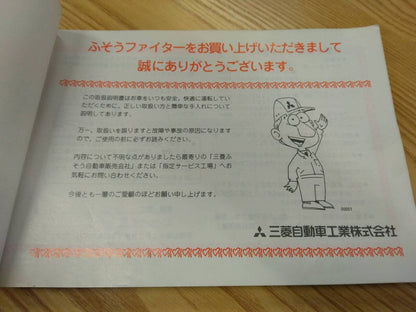 ふそうファイターをお買い上げいただきまして
誠にありがとうございます。
この取扱説明書はお車をいつも安全、快適に運転していただくために、正しい取扱い方と簡単な手入れについて
説明してあります。
万一、取扱いを誤りますと故障や事故の原因になりますので、ご使用の前に必ずお読みください。
内容について不明な点がありましたら最寄りの「三菱ふそう自動車販売会社」または「指定サービス工場」へお気軽にお問い合わせください。
今後とも一層のご愛顧のほどお願い申し上げます。
00001
三菱自動車工業株式会社